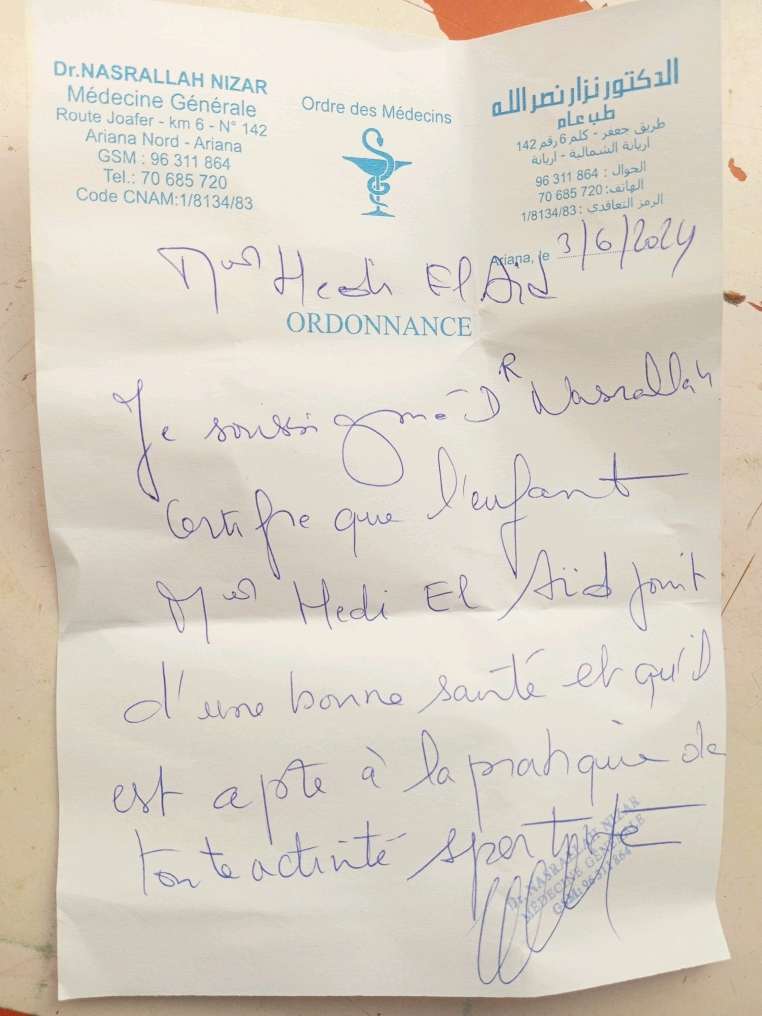 Dr.NASRALLAH NIZAR
Médecine Générale
Route Joafer - km 6 - N° 142
Ariana Nord - Ariana
GSM : 96 311 864
Tel.: 70 685 720
Code CNAM:1/8134/83
Ordre des Médecins
الدكتور نزار نصر الله
طب عام
طريق جعفر - كلم 6 رقم 142
اريانة الشمالية - اريانة
الجوال : 864 311 96
الهاتف: 720 685 70
الرمز التعاقدي : 1/8134/83
Ariana, le 3/6/2024
Hedi El Aïd
ORDONNANCE
Je soussigné Dr Nasrallah
Certifie que l'enfant
Hedi El Aïd jouit
d'une bonne santé et qu'il
est apte à la pratique de
toute activité sportive
Dr. NASRALLAH NIZAR
MÉDECINE GÉNÉRALE
GSM: 96 311 864